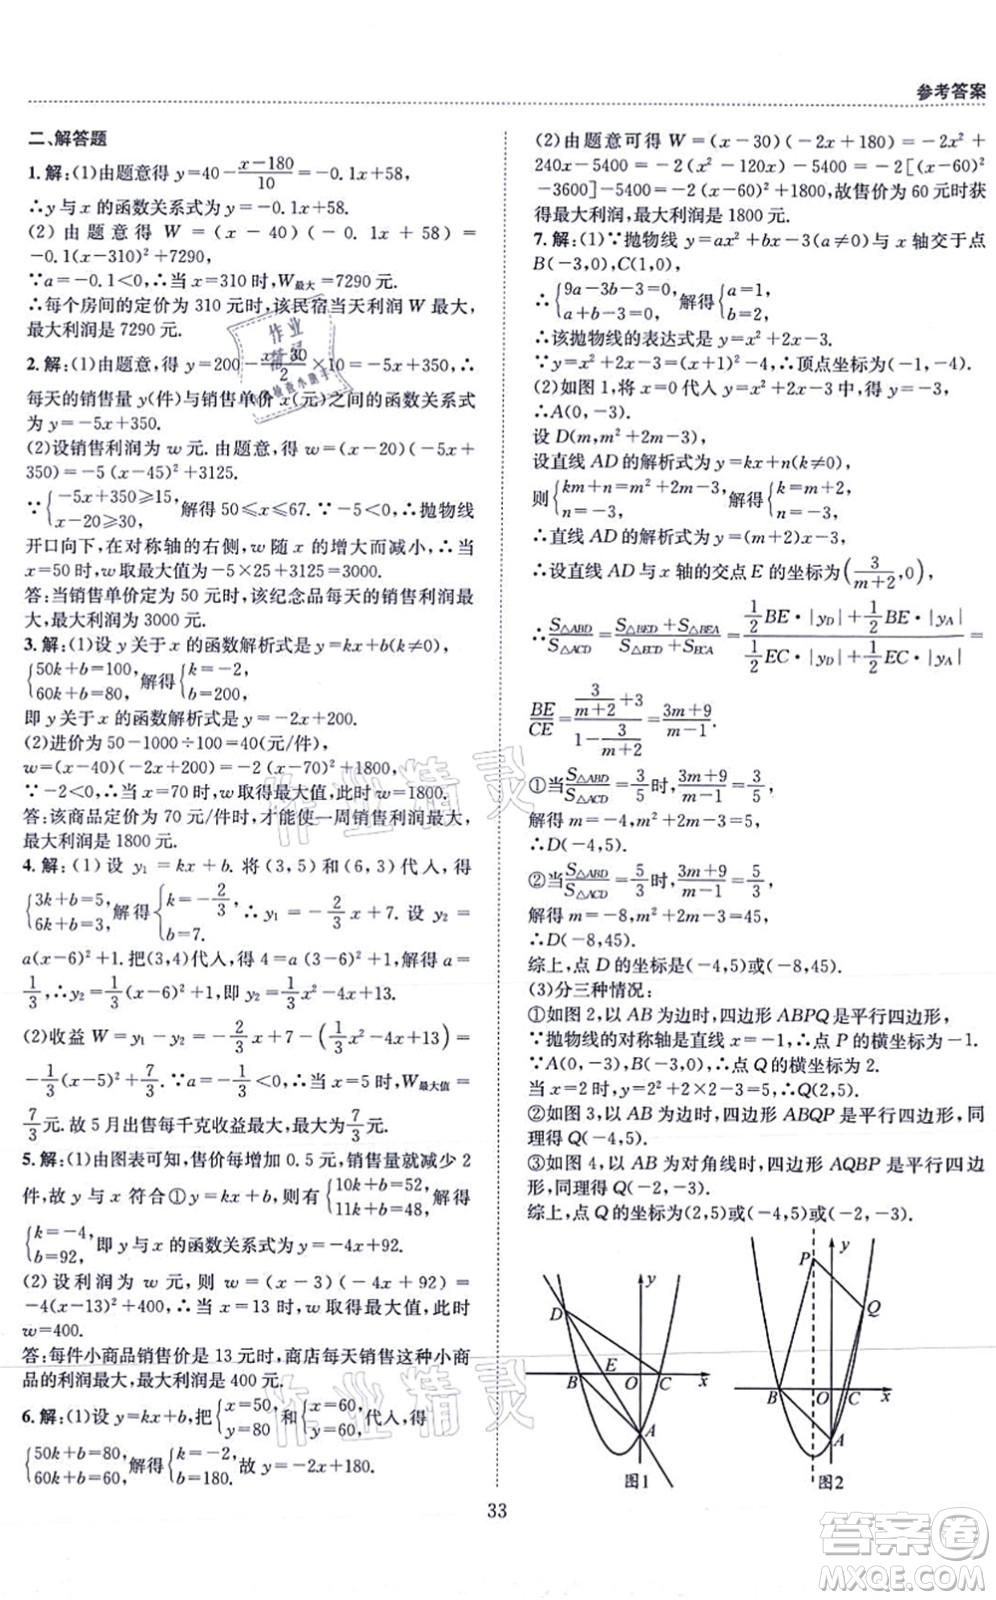 参考答案
二、解答题
1.解:(1)由题意得 y=40-(x-180)/10=-0.1x+58,
∴y 与 x 的函数关系式为 y=-0.1x+58.
(2) 由 题 意 得 W = (x - 40)(- 0.1x + 58) =
-0.1(x-310)²+7290.
∵a=-0.1<0,∴当 x=310 时,W最大=7290 元.
∴每个房间的定价为 310 元时,该民宿当天利润 W 最大,
最大利润是 7290 元.
2.解:(1)由题意,得 y=200-(x-30)/2×10=-5x+350,∴
每天的销售量 y(件)与销售单价 x(元)之间的函数关系式
为 y=-5x+350.
(2)设销售利润为 w 元. 由题意,得 w=(x-20)(-5x+
350)=-5(x-45)²+3125.
∵{-5x+350≥15, x-20≥30, 解得 50≤x≤67. ∵-5<0,∴抛物线
开口向下,在对称轴的右侧,w 随 x 的增大而减小,∴当
x=50 时,w 取最大值为-5×25+3125=3000.
答:当销售单价定为 50 元时,该纪念品每天的销售利润最
大,最大利润为 3000 元.
3.解:(1)设 y 关于 x 的函数解析式是 y=kx+b(k≠0),
{50k+b=100, 60k+b=80, 解得{k=-2, b=200.
即 y 关于 x 的函数解析式是 y=-2x+200.
(2)进价为 50-1000÷100=40(元/件),
w=(x-40)(-2x+200)=-2(x-70)²+1800.
∵-2<0,∴当 x=70 时,w 取得最大值,此时 w=1800.
答:该商品定价为 70 元/件时,才能使一周销售利润最大,
最大利润是 1800 元.
4.解:(1) 设 y₁ =kx+b. 将 (3,5) 和 (6,3) 代入,得
{3k+b=5, 6k+b=3, 解得{k=-2/3, b=7. ∴ y₁ = -2/3x + 7. 设 y₂ =
a(x-6)²+1. 把(3,4)代入,得 4=a(3-6)²+1,解得 a=
1/3,∴y₂=1/3(x-6)²+1,即 y₂=1/3x²-4x+13.
(2)收益 W=y₁-y₂=-2/3x+7-(1/3x²-4x+13)=
-1/3(x-5)²+7/3. ∵a=-1/3<0,∴当 x=5 时,W最大值=
7/3元. 故 5 月出售每千克收益最大,最大为7/3元.
5.解:(1)由图表可知,售价每增加 0.5 元,销售量就减少 2
件,故 y 与 x 符合①y=kx+b,则有{10k+b=52, 11k+b=48, 解得
{k=-4, b=92, 即 y 与 x 的函数关系式为 y=-4x+92.
(2) 设 利 润 为 w 元,则 w = (x - 3)(- 4x + 92) =
-4(x-13)²+400,∴当 x=13 时,w 取得最大值,此时
w=400.
答:每件小商品销售价是 13 元时,商店每天销售这种小商
品的利润最大,最大利润是 400 元.
6.解:(1)设 y=kx+b,把{x=50, y=80 和{x=60, y=60, 代入,得
{50k+b=80, 60k+b=60, 解得{k=-2, b=180. 故 y=-2x+180.
(2)由题意可得 W=(x-30)(-2x+180)=-2x²+
240x-5400=-2(x²-120x)-5400=-2[(x-60)²
-3600]-5400=-2(x-60)²+1800,故售价为 60 元时获
得最大利润,最大利润是 1800 元.
7.解:(1)∵抛物线 y=ax²+bx-3(a≠0)与 x 轴交于点
B(-3,0),C(1,0),
∴{9a-3b-3=0, a+b-3=0, 解得{a=1, b=2,
∴该抛物线的表达式为 y=x²+2x-3.
∵y=x²+2x-3=(x+1)²-4,∴顶点坐标为(-1,-4).
(2)如图 1,将 x=0 代入 y=x²+2x-3 中,得 y=-3,
∴A(0,-3).
设 D(m,m²+2m-3),
设直线 AD 的解析式为 y=kx+n(k≠0),
则{km+n=m²+2m-3, n=-3, 解得{k=m+2, n=-3.
∴直线 AD 的解析式为 y=(m+2)x-3,
∴设直线 AD 与 x 轴的交点 E 的坐标为(3/(m+2),0),
∴S△ABD/S△ACD=(S△BED+S△BEA)/(S△ECD+SECA)=(1/2BE·|yD|+1/2BE·|yA|)/(1/2EC·|yD|+1/2EC·|yA|)=
BE/CE=(3/(m+2)+3)/(1-3/(m+2))=(3m+9)/(m-1).
①当S△ABD/S△ACD=3/5时,(3m+9)/(m-1)=3/5,
解得 m=-4,m²+2m-3=5,
∴D(-4,5).
②当S△ABD/S△ACD=5/3时,(3m+9)/(m-1)=5/3,
解得 m=-8,m²+2m-3=45,
∴D(-8,45).
综上,点 D 的坐标是(-4,5)或(-8,45).
(3)分三种情况:
①如图 2,以 AB 为边时,四边形 ABPQ 是平行四边形,
∵抛物线的对称轴是直线 x=-1,∴点 P 的横坐标为-1.
∵A(0,-3),B(-3,0),∴点 Q 的横坐标为 2.
当 x=2 时,y=2²+2×2-3=5,∴Q(2,5).
②如图 3,以 AB 为边时,四边形 ABQP 是平行四边形,同
理得 Q(-4,5).
③如图 4,以 AB 为对角线时,四边形 AQBP 是平行四边
形,同理得 Q(-2,-3).
综上,点 Q 的坐标为(2,5)或(-4,5)或(-2,-3).
D E B O C x y A 图1
P Q B O C x y A 图2
33
作业精灵
作业精灵
答案圈
MXQE.COM